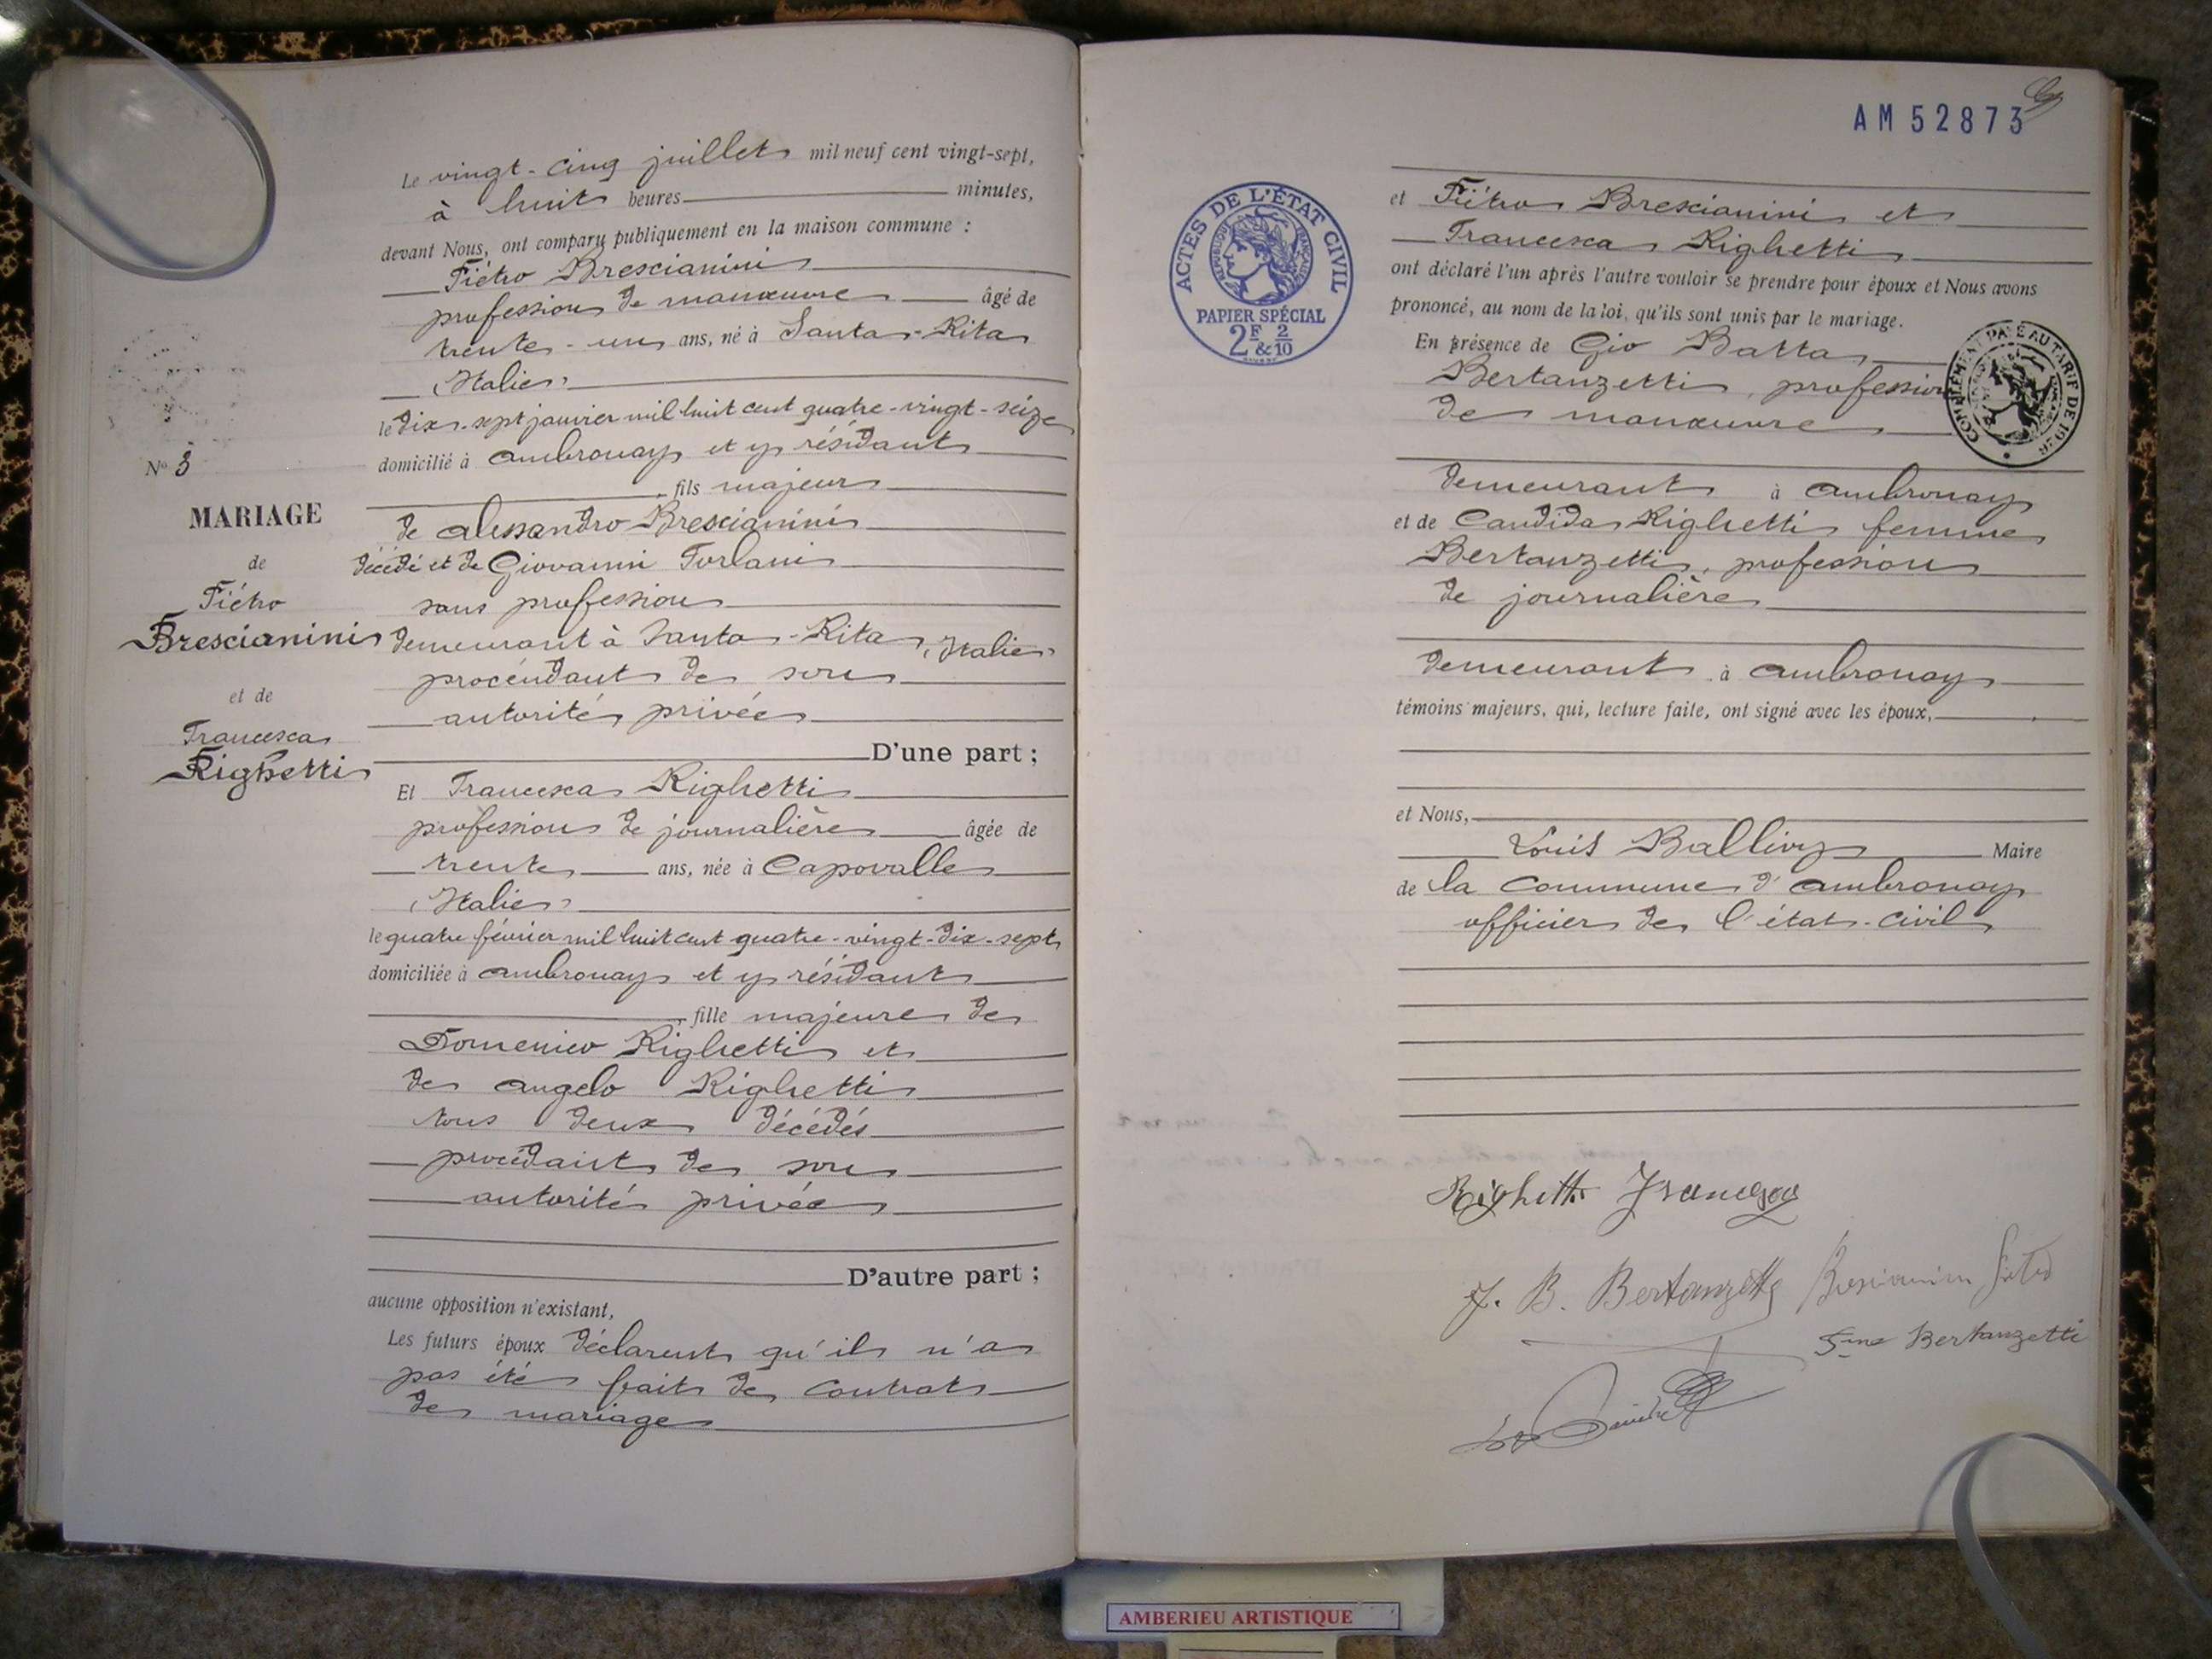 Le vingt-cinq juillet mil neuf cent vingt-sept,
à huit heures minutes,
devant Nous, ont comparu publiquement en la maison commune :
Piétro Brescianini
profession de manœuvre âgé de
trente-un ans, né à Santa-Rita
(Italie)
le dix-sept janvier mil huit cent quatre-vingt-seize
domicilié à Ambronay et y résidant
, fils majeur
de Alessandro Brescianini
décédé et de Giovanni Torlani
sans profession
demeurant à Santa-Rita (Italie)
procéndant de son
autorité privée
D'une part ;
Nº 3
MARIAGE
de
Piétro
Brescianini
et de
Francesca
Righetti
Et Francesca Righetti
profession de journalière âgée de
trente ans, née à Capovalle
(Italie)
le quatre février mil huit cent quatre-vingt-dix-sept
domiciliée à Ambronay et y résidant
, fille majeure de
Domenico Righetti et
de Angelo Righetti
tous deux décédés
procédant de son
autorité privée
D'autre part ;
aucune opposition n'existant,
Les futurs époux déclarent qu'il n'a
pas été fait de contrat
de mariage
AM 52873
ACTES DE L'ÉTAT CIVIL
RÉPUBLIQUE FRANÇAISE
PAPIER SPÉCIAL
2F & 2/10
et Piétro Brescianini et
Francesca Righetti
ont déclaré l'un après l'autre vouloir se prendre pour époux et Nous avons
prononcé, au nom de la loi, qu'ils sont unis par le mariage.
En présence de Gio Batta
Bertanzetti, profession
de manœuvre
COMPLÉMENT PAYÉ AU TARIF DE 1926
demeurant à Ambronay
et de Candida Righetti femme
Bertanzetti, profession
de journalière
demeurant à Ambronay
témoins majeurs, qui, lecture faite, ont signé avec les époux,
et Nous,
Louis Ballivy Maire
de la commune d'Ambronay
officier de l'état-civil
Righetti Francesca
J. B. Bertanzetti Brescianini Pietro
Fme Bertanzetti
AMBERIEU ARTISTIQUE